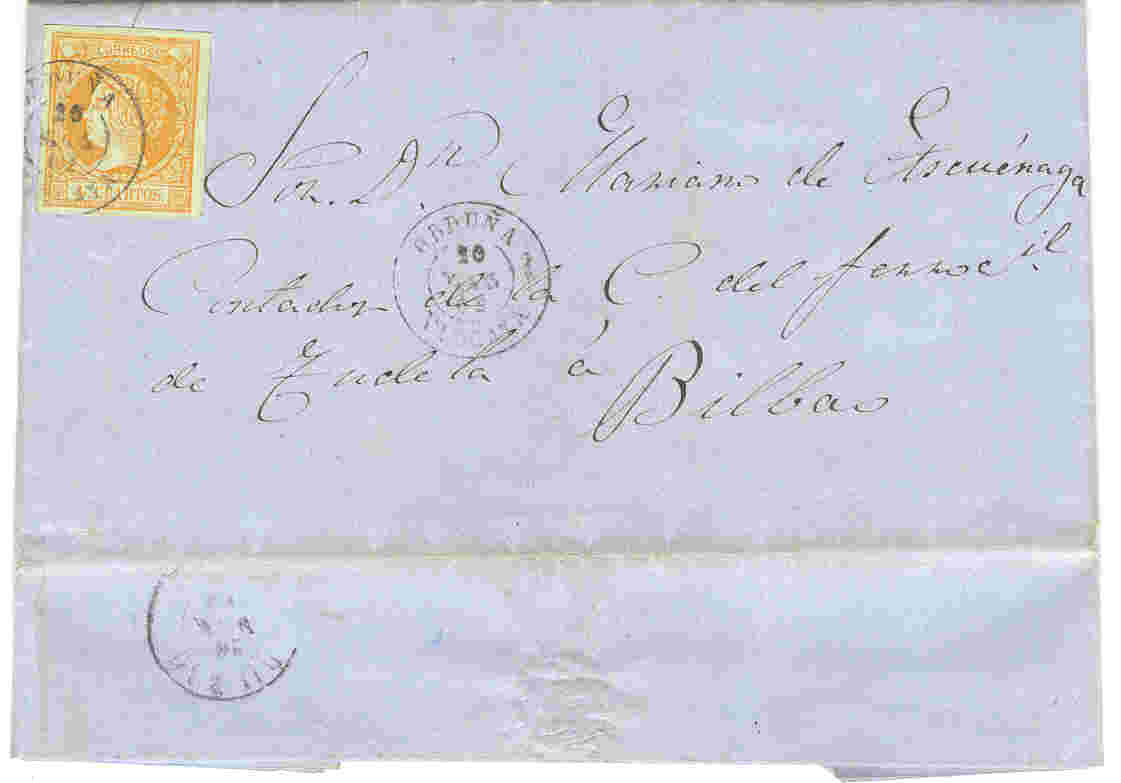 CORREOS
4 CUARTOS
Sor. Dn. Mariano de Ascuénaga
Contador de la C. del ferroc.il
de Tudela á
Bilbao
ORDUÑA
20
VIZCAYA